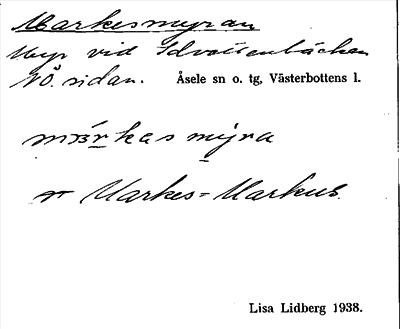 Markesmyran
Myr vid Idvattenbäcken
NÖ. sidan. Åsele sn o. tg, Västerbottens l.
kasmyra
Markes = Markus.
Lisa Lidberg 1938.